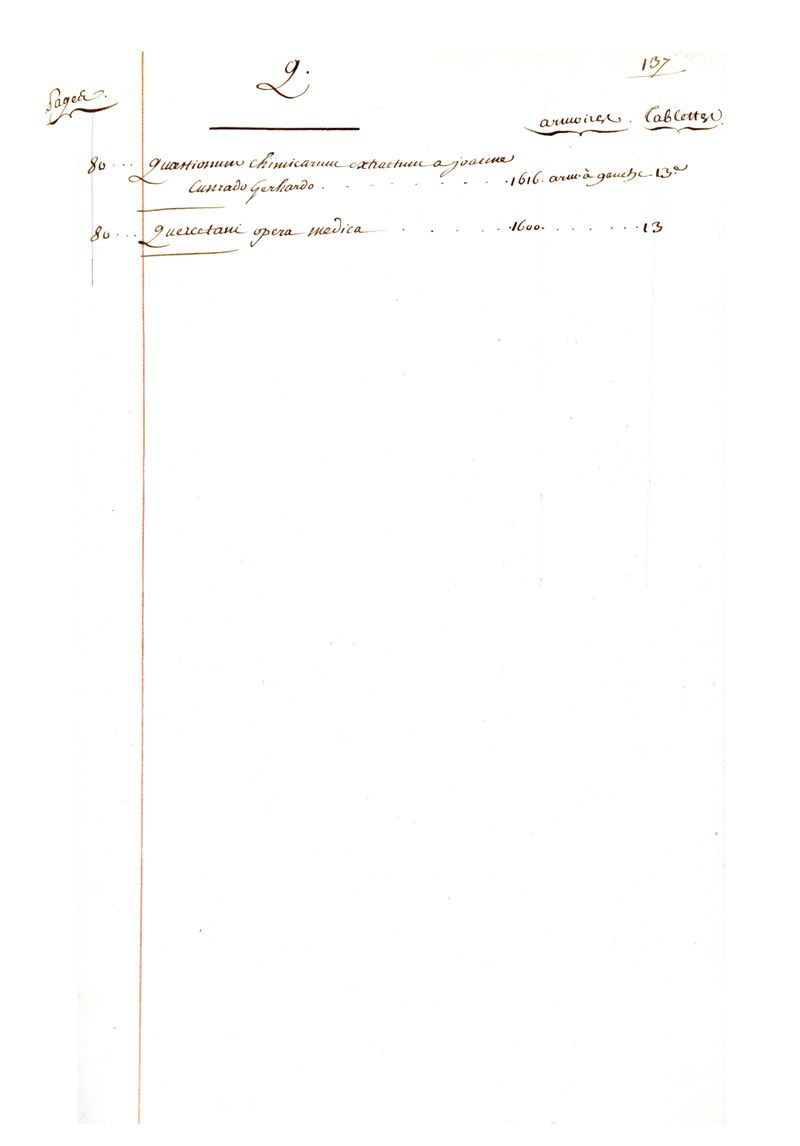 Q.
137
Pages.
armoires. Tablettes.
80 ... Quæstionum chimicarum extractum a joanne
Cunrado Gerhardo . . . . . . . . 1616. arm. à gauche 13e
80 ... Quercetani opera medica . . . . . . 1600. . . . . . . 13